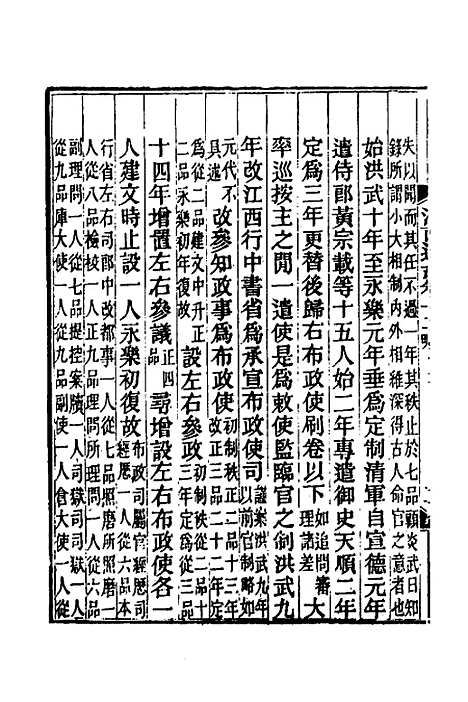 失以聞而其任不過一年其秩止於七品顧炎武日知
錄所謂小大相制內外相維深得古人命官之意者也
始洪武十年至永樂元年垂為定制清軍自宣德元年
遣侍郎黃宗載等十五人始二年專遣御史天順二年
定為三年更替後歸右布政使刷卷以下如追問審理諸差大
率巡按主之間一遣使是為敕使監臨官之制洪武九
年改江西行中書省為承宣布政使司謹案洪武九年以前官制略如
元代不具述改參知政事為布政使初制秩正二品十三年改正三品二十二年定
為從二品建文中升正二品永樂初年復故設左右參政初制秩從二品十三年定為從三品
十四年增置左右參議正四品尋增設左右布政使各一
人建文時止設一人永樂初復故布政司屬官經歷司經歷一人從六品本
行省左右司郎中改都事一人從七品照磨所照磨一
人從八品檢校一人正九品理問所理問一人從六品
副理問一人從七品提控案牘一人司獄司司獄一人
從九品庫大使一人從九品副使一人倉大使一人從